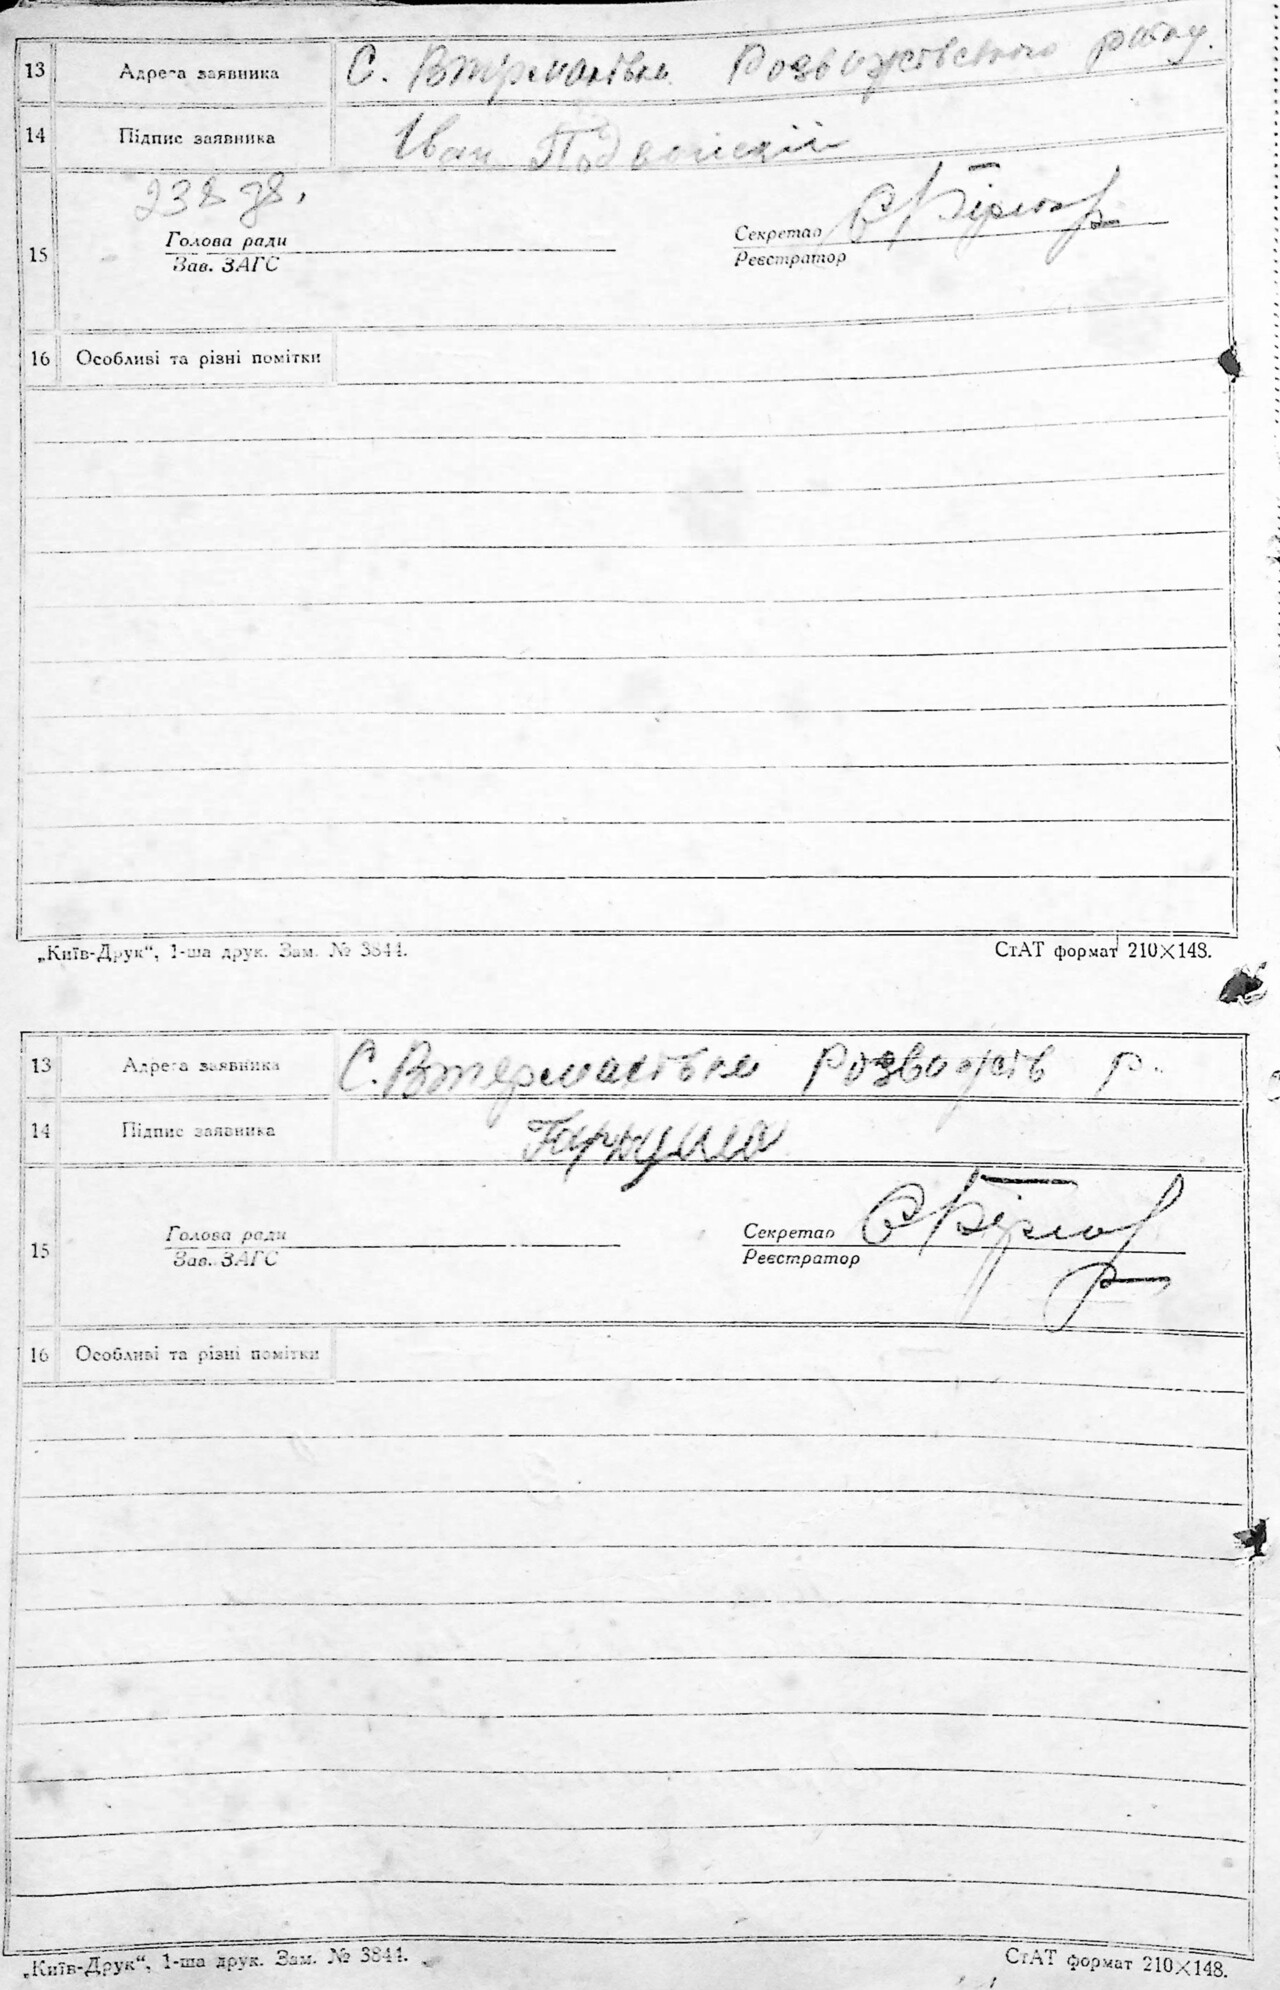 13 Адреса заявника С. Втермаківка Розважівського району.
14 Підпис заявника Іван
Голова ради Секретар
15 Зав. ЗАГС Реєстратор
16 Особливі та різні помітки
„Київ-Друк“, 1-ша друк. Зам. № 3844. СтАТ формат 210×148.
13 Адреса заявника С. Розважів р.
14 Підпис заявника
Голова ради Секретар
15 Зав. ЗАГС Реєстратор
16 Особливі та різні помітки
„Київ-Друк“, 1-ша друк. Зам. № 3844. СтАТ формат 210×148.